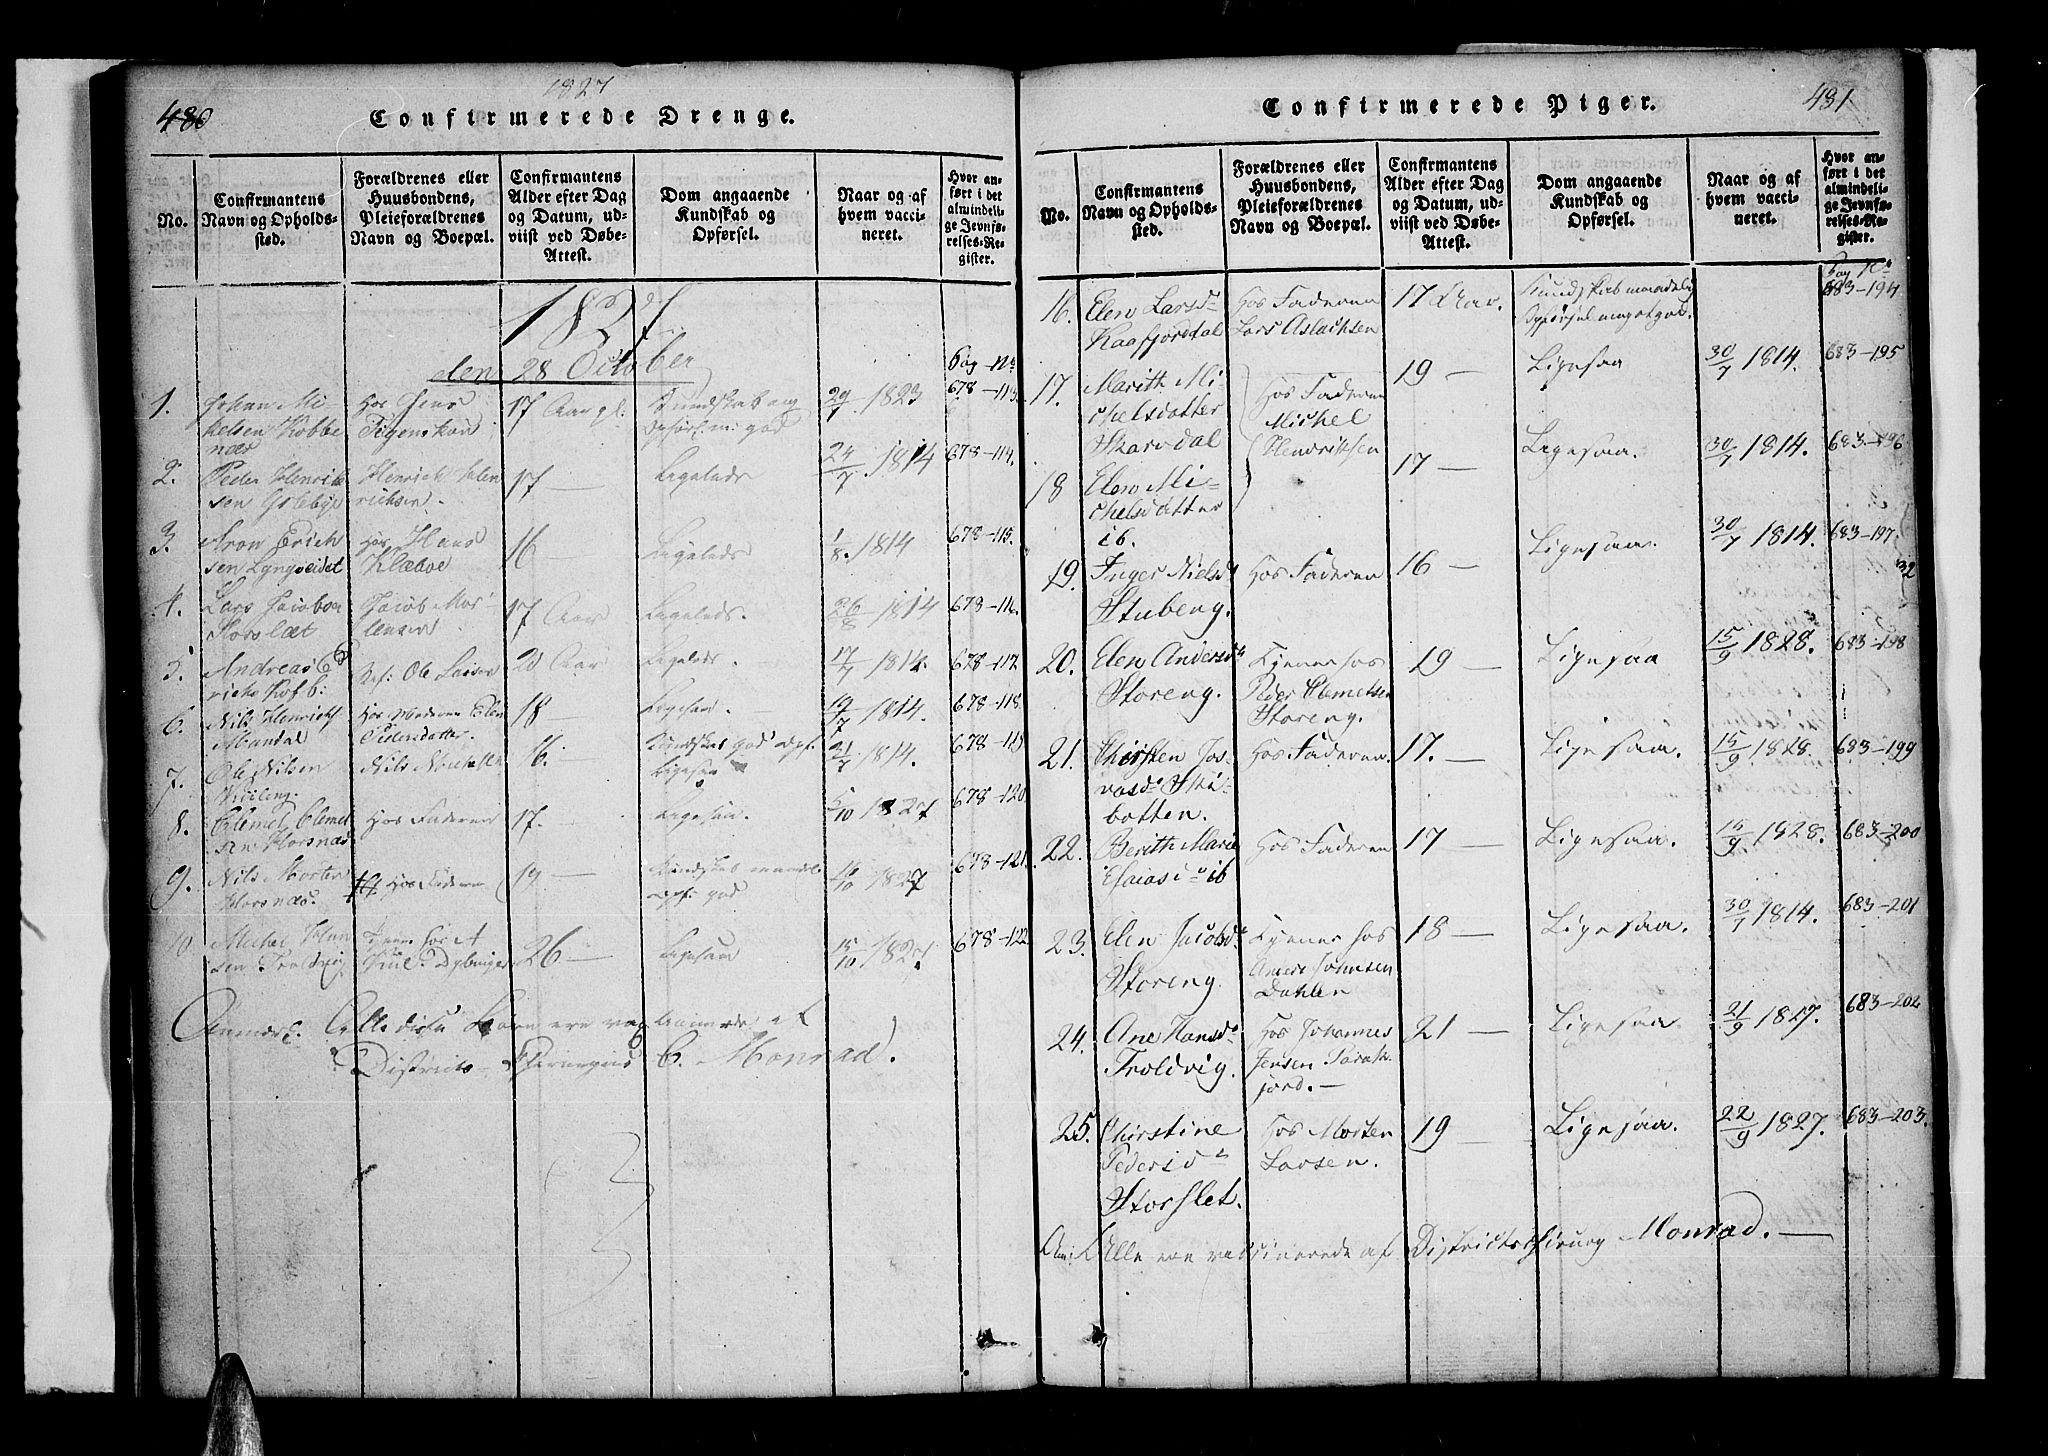 1827
480
Confirmerede Drenge.
No.
Confirmantens
Navn og Opholds-
sted.
Forældrenes eller
Huusbondens,
Pleieforældrenes
Navn og Boepæl.
Confirmantens
Alder efter Dag
og Datum, ud-
viist ved Døbe-
Attest.
Dom angaaende
Kundskab og
Opførsel.
Naar og af
hvem vacci-
neret.
Hvor an-
ført i det
almindeli-
ge Jevnfø-
relses-Re-
gister.
1827
den 28 October
Pag No
1.
Johan Mi
kelsen Kobbe
næs
Hos Jens
17 Aar
Kundskab og
Opførs. god
29/7 1823
678-113.
2.
Peder Henrik
sen
Henrich Hen
richsen.
17 —
Ligeleds
24/7 1814
678-114.
3.
Aron Erich
sen Lyngseidet
hos Hans
Klæboe
16 —
Ligeleds
1/8. 1814
678-115.
4.
Lars Jacobsen
Storslæt
Jacob Mor-
tensen
17 Aar
Ligeleds.
26/8 1814
678-116.
5.
Andreas
Ole Larsen
20 Aar
Ligeleds.
17/7 1814.
678-117.
6.
Nils Henrichs
Mandal
Hos Moderen Elen
Pedersdatter.
18 —
Ligesaa.
19/7 1814.
678-118.
7.
Ole Nilsen
Nils
16. —
Kundskab god opf.
Ligesaa
21/7 1814.
678-119
8.
Clemet Clemet
sen Horsnæs
Hos Faderen
17. —
Ligesaa.
5/10 1827
678-120
9.
Nils Morten
Horsnæs.
Hos Faderen
19 —
Kundskab maadel
opf. god
16/10 1827
678-121.
10.
Michel Han
sen Troldvig
26 —
Ligesaa
15/10 1827.
678-122
Anmærk. Alle disse Børn ere vaccinerede af
Districts- Chirurgus C. Monrad.
Confirmerede Piger.
481
No.
Confirmantens
Navn og Opholds-
sted.
Forældrenes eller
Huusbondens,
Pleieforældrenes
Navn og Boepæl.
Confirmantens
Alder efter Dag
og Datum, ud-
viist ved Døbe-
Attest.
Dom angaaende
Kundskab og
Opførsel.
Naar og af
hvem vacci-
neret.
Hvor an-
ført i det
almindeli-
ge Jevnfø-
relses-Re-
gister.
Pag No
16.
Elen Larsd.
Kaafjorddal
Hos Faderen
Lars Aslachsen
17 Aar.
Kundskab maadelig
Opførsel meget god.
683-194
17.
Marith Mi-
chelsdatter
Skarvdal
Hos Faderen
Michel
Hendriksen
19 —
Ligesaa
30/7 1814.
683-195
18
Elen Mi-
chelsdatter
ib.
17 —
Ligesaa.
30/7 1814.
683-196
19.
Inger Nielsd.
Stubeng.
Hos Faderen
16 —
Ligesaa.
30/7 1814.
683-197
32
20.
Elen Andersd.
Storeng.
Tjener hos
Peder Clemetsen
Storeng.
19 —
Ligesaa
15/9 1828.
683-198
21.
Chirsten Jos-
vasd. Ski-
botten.
Hos Faderen
17. —
Ligesaa.
15/9 1828.
683-199
22.
Berith Marie
Esaiasd. ib
Hos Faderen
17 —
Ligesaa.
15/9 1828.
683-200
23.
Elen Jacobsd.
Storeng.
Tjener hos
Anders Johnsen
Dahlen
18 —
Ligesaa.
30/7 1814.
683-201
24.
Ane Hansd.
Troldvig.
Hos Johannes
Jensen
fjord. —
21 —
Ligesaa
21/9 1827.
683-202
25.
Chirstine
Pedersd.
Storslet.
Hos Morten
Larsen.
19 —
Ligesaa.
22/9 1827.
683-203.
Anm: Alle ere vaccinerede af Districtschirurg Monrad. —